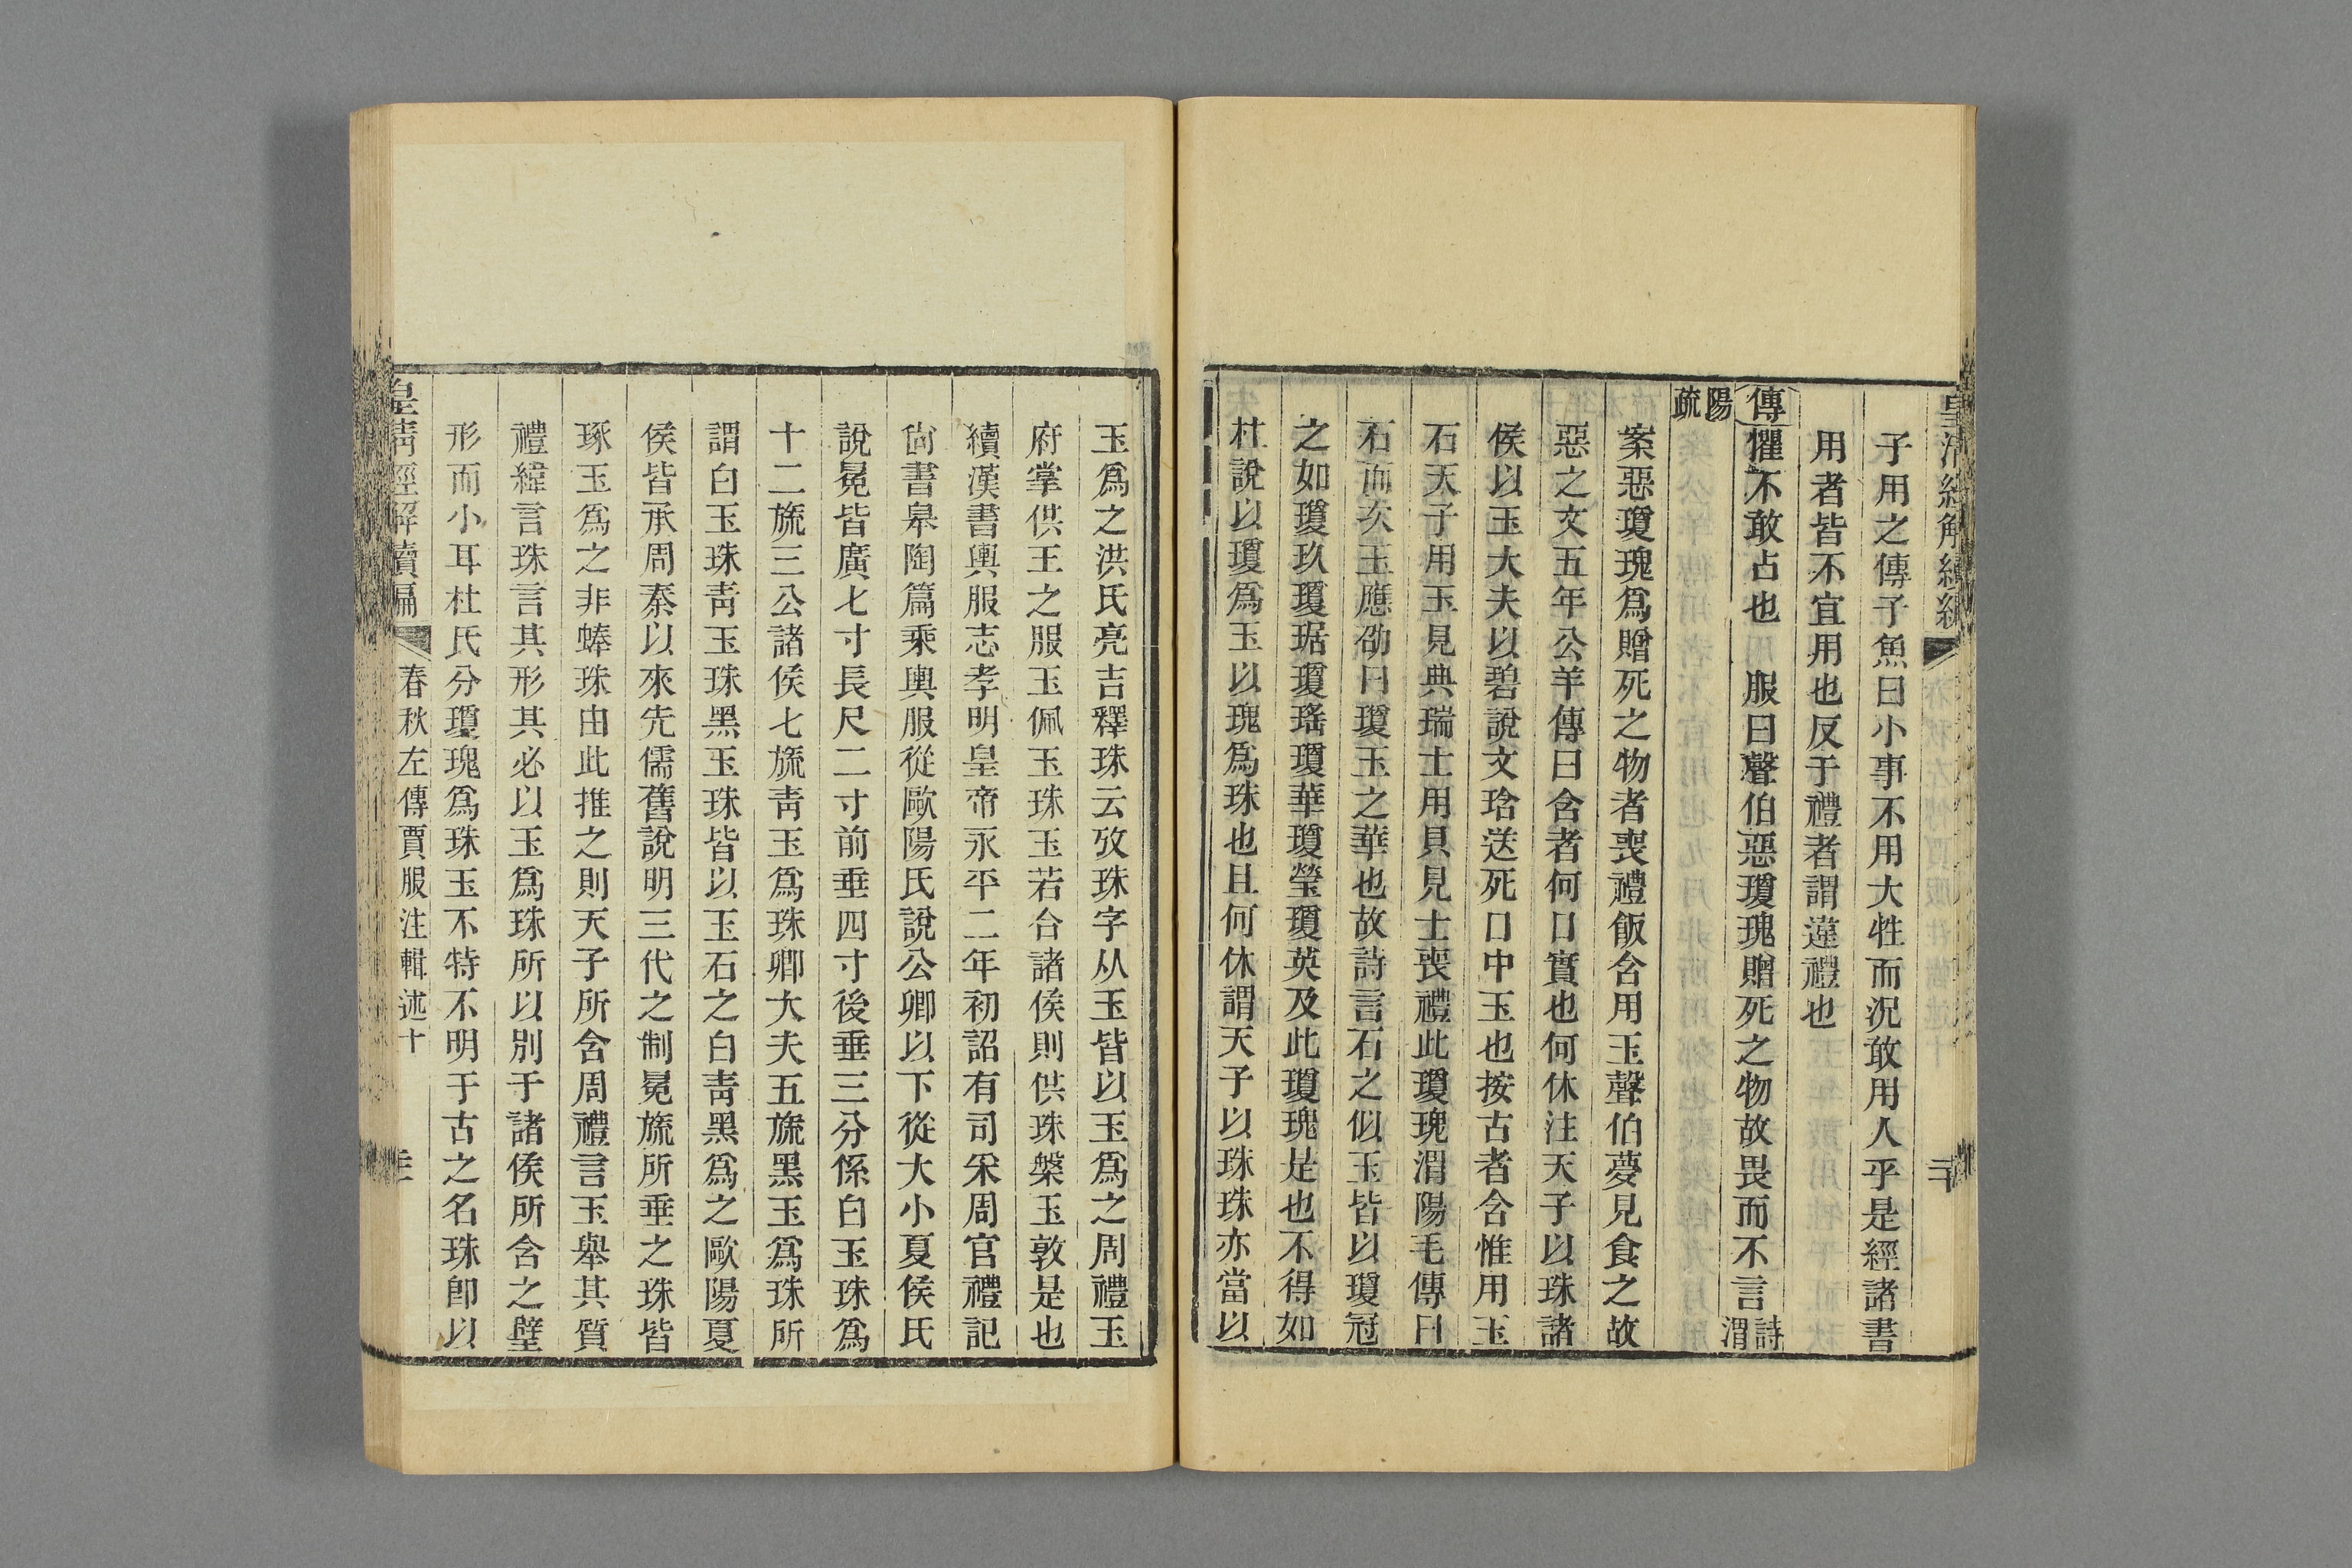 子用之傳子魚曰小事不用大牲而況敢用人乎是經諸書
用者皆不宜用也反于禮者謂違禮也
傳懼不敢占也 服曰聲伯惡瓊瑰贈死之物故畏而不言詩渭
陽疏
案惡瓊瑰爲贈死之物者喪禮飯含用玉聲伯夢見食之故
惡之文五年公羊傳曰含者何口實也何休注天子以珠諸
侯以玉大夫以碧說文琀送死口中玉也按古者含惟用玉
石天子用玉見典瑞士用貝見士喪禮此瓊瑰渭陽毛傳曰
石而次玉應劭曰瓊玉之華也故詩言石之似玉皆以瓊冠
之如瓊玖瓊琚瓊瑤瓊華瓊瑩瓊英及此瓊瑰是也不得如
杜說以瓊爲玉以瑰爲珠也且何休謂天子以珠珠亦當以
玉爲之洪氏亮吉釋珠云攷珠字从玉皆以玉爲之周禮玉
府掌供王之服玉佩玉珠玉若合諸侯則供珠槃玉敦是也
續漢書輿服志孝明皇帝永平二年初詔有司采周官禮記
尙書皋陶篇乘輿服從歐陽氏說公卿以下從大小夏侯氏
說冕皆廣七寸長尺二寸前垂四寸後垂三分係白玉珠爲
十二旒三公諸侯七旒靑玉爲珠卿大夫五旒黑玉爲珠所
謂白玉珠靑玉珠黑玉珠皆以玉石之白靑黑爲之歐陽夏
侯皆承周秦以來先儒舊說明三代之制冕旒所垂之珠皆
琢玉爲之非蜯珠由此推之則天子所含周禮言玉舉其質
禮緯言珠言其形其必以玉爲珠所以別于諸侯所含之璧
形而小耳杜氏分瓊瑰爲珠玉不特不明于古之名珠卽以
皇淸經解續編 春秋左傳賈服注輯述十